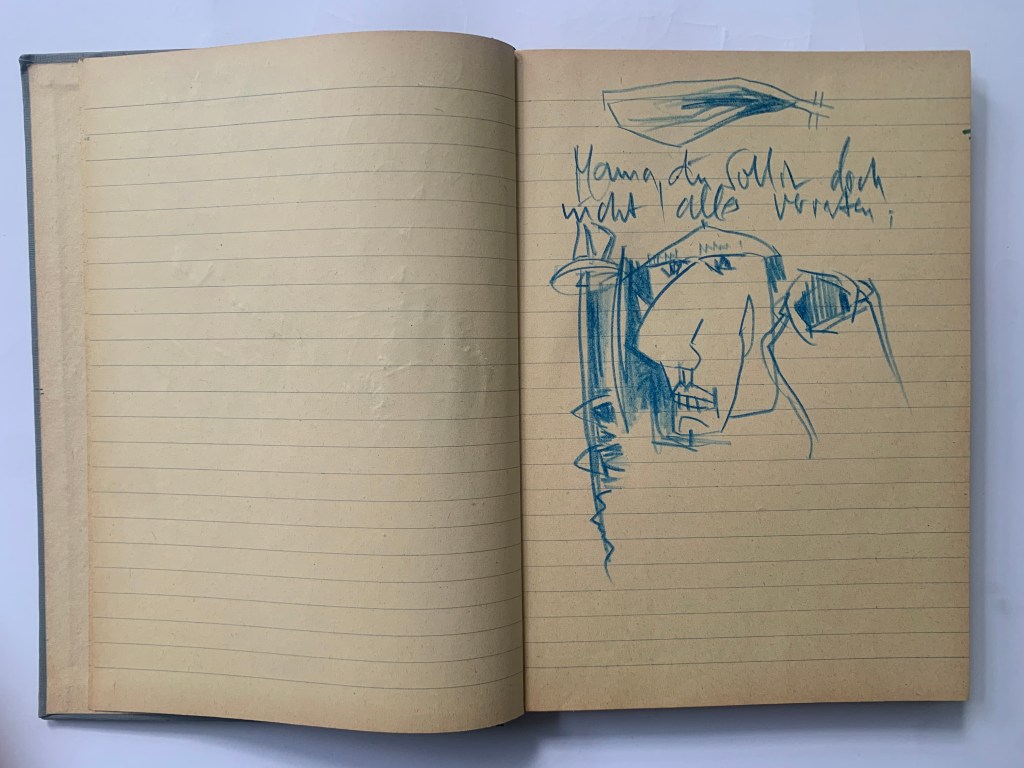 Mama, du sollst doch
nicht alles verraten!